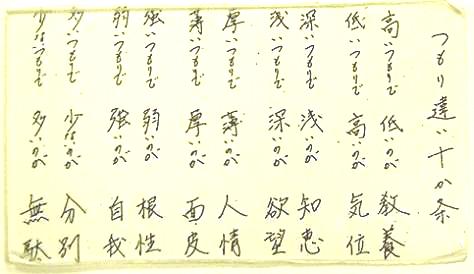 つもり違い十か条
高いつもりで低いのが教養
低いつもりで高いのが気位
深いつもりで浅いのが知恵
浅いつもりで深いのが欲望
厚いつもりで薄いのが人情
薄いつもりで厚いのが面皮
強いつもりで弱いのが根性
弱いつもりで強いのが自我
多いつもりで少ないのが分別
少ないつもりで多いのが無駄